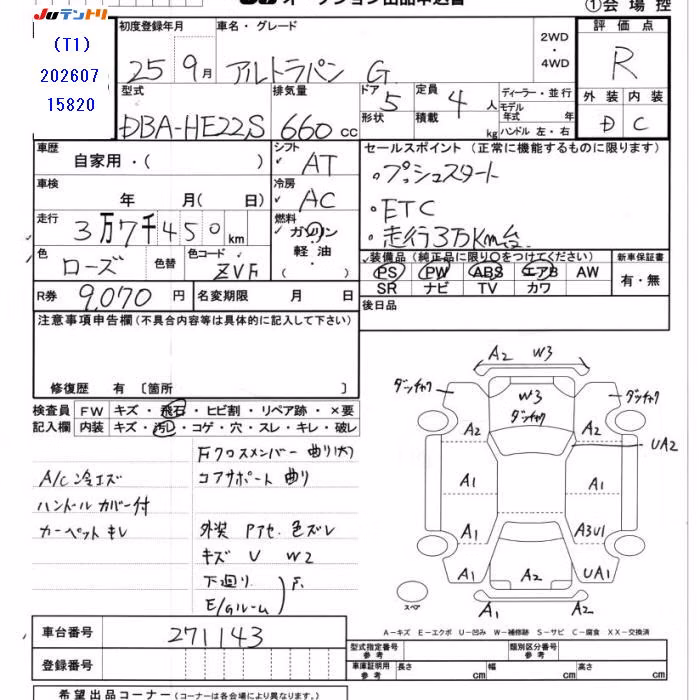 JUテントリ
オークション出品申込書
①会場控
(T1)
202607
15820
初度登録年月
25 9月
車名・グレード
アルトラパン G
2WD
・
4WD
評価点
R
外装 内装
D C
型式
DBA-HE22S
排気量
660 cc
ドア 5
形状
定員 4 人
積載 kg
ディーラー・並行
モデル
年式 年
ハンドル 左・右
車歴
自家用・( )
シフト
AT
車検
年 月( 日)
冷房
AC
走行
3万7千450 km
燃料
ガソリン
・
軽油
・
( )
色
ローズ
色替
色コード
ZVF
R券
9,070 円
名変期限 月 日
セールスポイント (正常に機能するものに限ります)
・プッシュスタート
・ETC
・走行3万Km台
装備品 (純正品に限り○をつけてください)
PS PW ABS エアB AW
SR ナビ TV カワ
新車保証書
有・無
後日品
注意事項申告欄 (不具合内容等は具体的に記入して下さい)
修復歴 有 〔箇所 〕
検査員 FW キズ・飛石・ヒビ割・リペア跡・×要
記入欄 内装 キズ・汚レ・コゲ・穴・スレ・キレ・破レ
A/C 冷エズ
ハンドル カバー付
カーペット キレ
Fクロスメンバー 曲り(大)
コアサポート 曲り
外装 Pアセ、色ズレ
キズ U W2
下廻り
E/Gルーム
F.
A2 W3
ダッチャク
W3
ダッチャク
ダッチャク
A2
A2
UA2
A1
A1
A1
A3U1
A1
A2
UA1
スペア
A1
A2
A-キズ E-エクボ U-凹み W-補修跡 S-サビ C-腐食 XX-交換済
車台番号
271143
登録番号
型式指定番号
参考
類別区分番号
参考
車庫証明用
参考
長さ cm
幅 cm
高さ cm
希望出品コーナー (コーナーは各会場により異なります。)